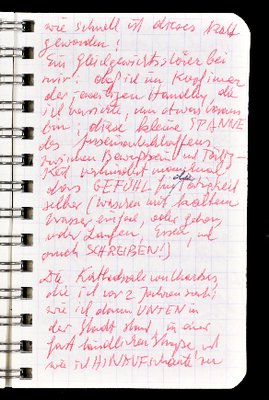 wie schnell ist dieses kalt
geworden!
Ein Gleichgewichtsstörer bei
mir: daß ich im Kopf immer
der jeweiligen Handlung, die
ich verrichte, um etwas voraus
bin; diese kleine SPANNE
des Auseinanderklaffens
zwischen Bewußtsein und Tätig-
keit verhindert manchmal
das GEFÜHL für die Tätigkeit
selber (Waschen mit kaltem
Wasser einfach, oder Gehen,
oder Laufen, Essen, und
auch SCHREIBEN!)
Die Kathedrale von Chartres,
die ich vor 2 Jahren sah:
wie ich damals UNTEN in
der Stadt stand, in einer
fast ländlichen Straße, und
wie ich HINAUFschaute zu